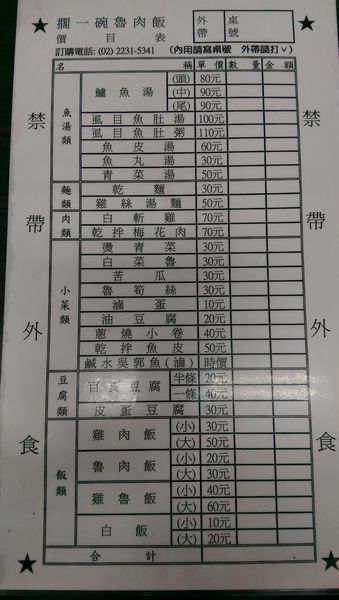 ★ 擱一碗魯肉飯 ★
價目表
外帶 桌號
訂購電話: (02) 2231-5341 (內用請寫桌號 外帶請打∨)
禁帶外食
名 稱 單價 數量 金額
魚湯類
鱸魚湯 (頭) 80元
(中) 90元
(尾) 90元
虱目魚肚湯 100元
虱目魚肚粥 110元
魚皮湯 60元
魚丸湯 30元
青菜湯 50元
麵類
乾麵 30元
雞絲湯麵 50元
肉類
白斬雞 70元
乾拌梅花肉 70元
小菜類
燙青菜 30元
白菜魯 30元
苦瓜 30元
魯筍絲 30元
滷蛋 10元
油豆腐 20元
蔥燒小卷 40元
乾拌魚皮 50元
鹹水吳郭魚(滷) 時價
豆腐類
百頁豆腐 半條 20元
一條 40元
皮蛋豆腐 30元
飯類
雞肉飯 (小) 30元
(大) 50元
魯肉飯 (小) 20元
(大) 30元
雞魯飯 (小) 40元
(大) 60元
白飯 (小) 10元
(大) 20元
合計
禁帶外食
★ ★